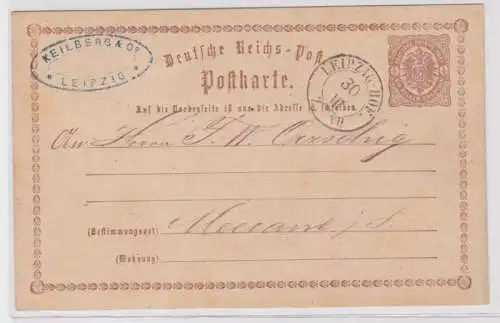 KEILBERG & Co
LEIPZIG
Deutsche Reichs-Post
Postkarte.
Auf die Vorderseite ist nur die Adresse zu schreiben.
LEIPZIG-HOF
30
III
An Herrn F. W.
Meerane i/S.
(Bestimmungsort)
(Wohnung)